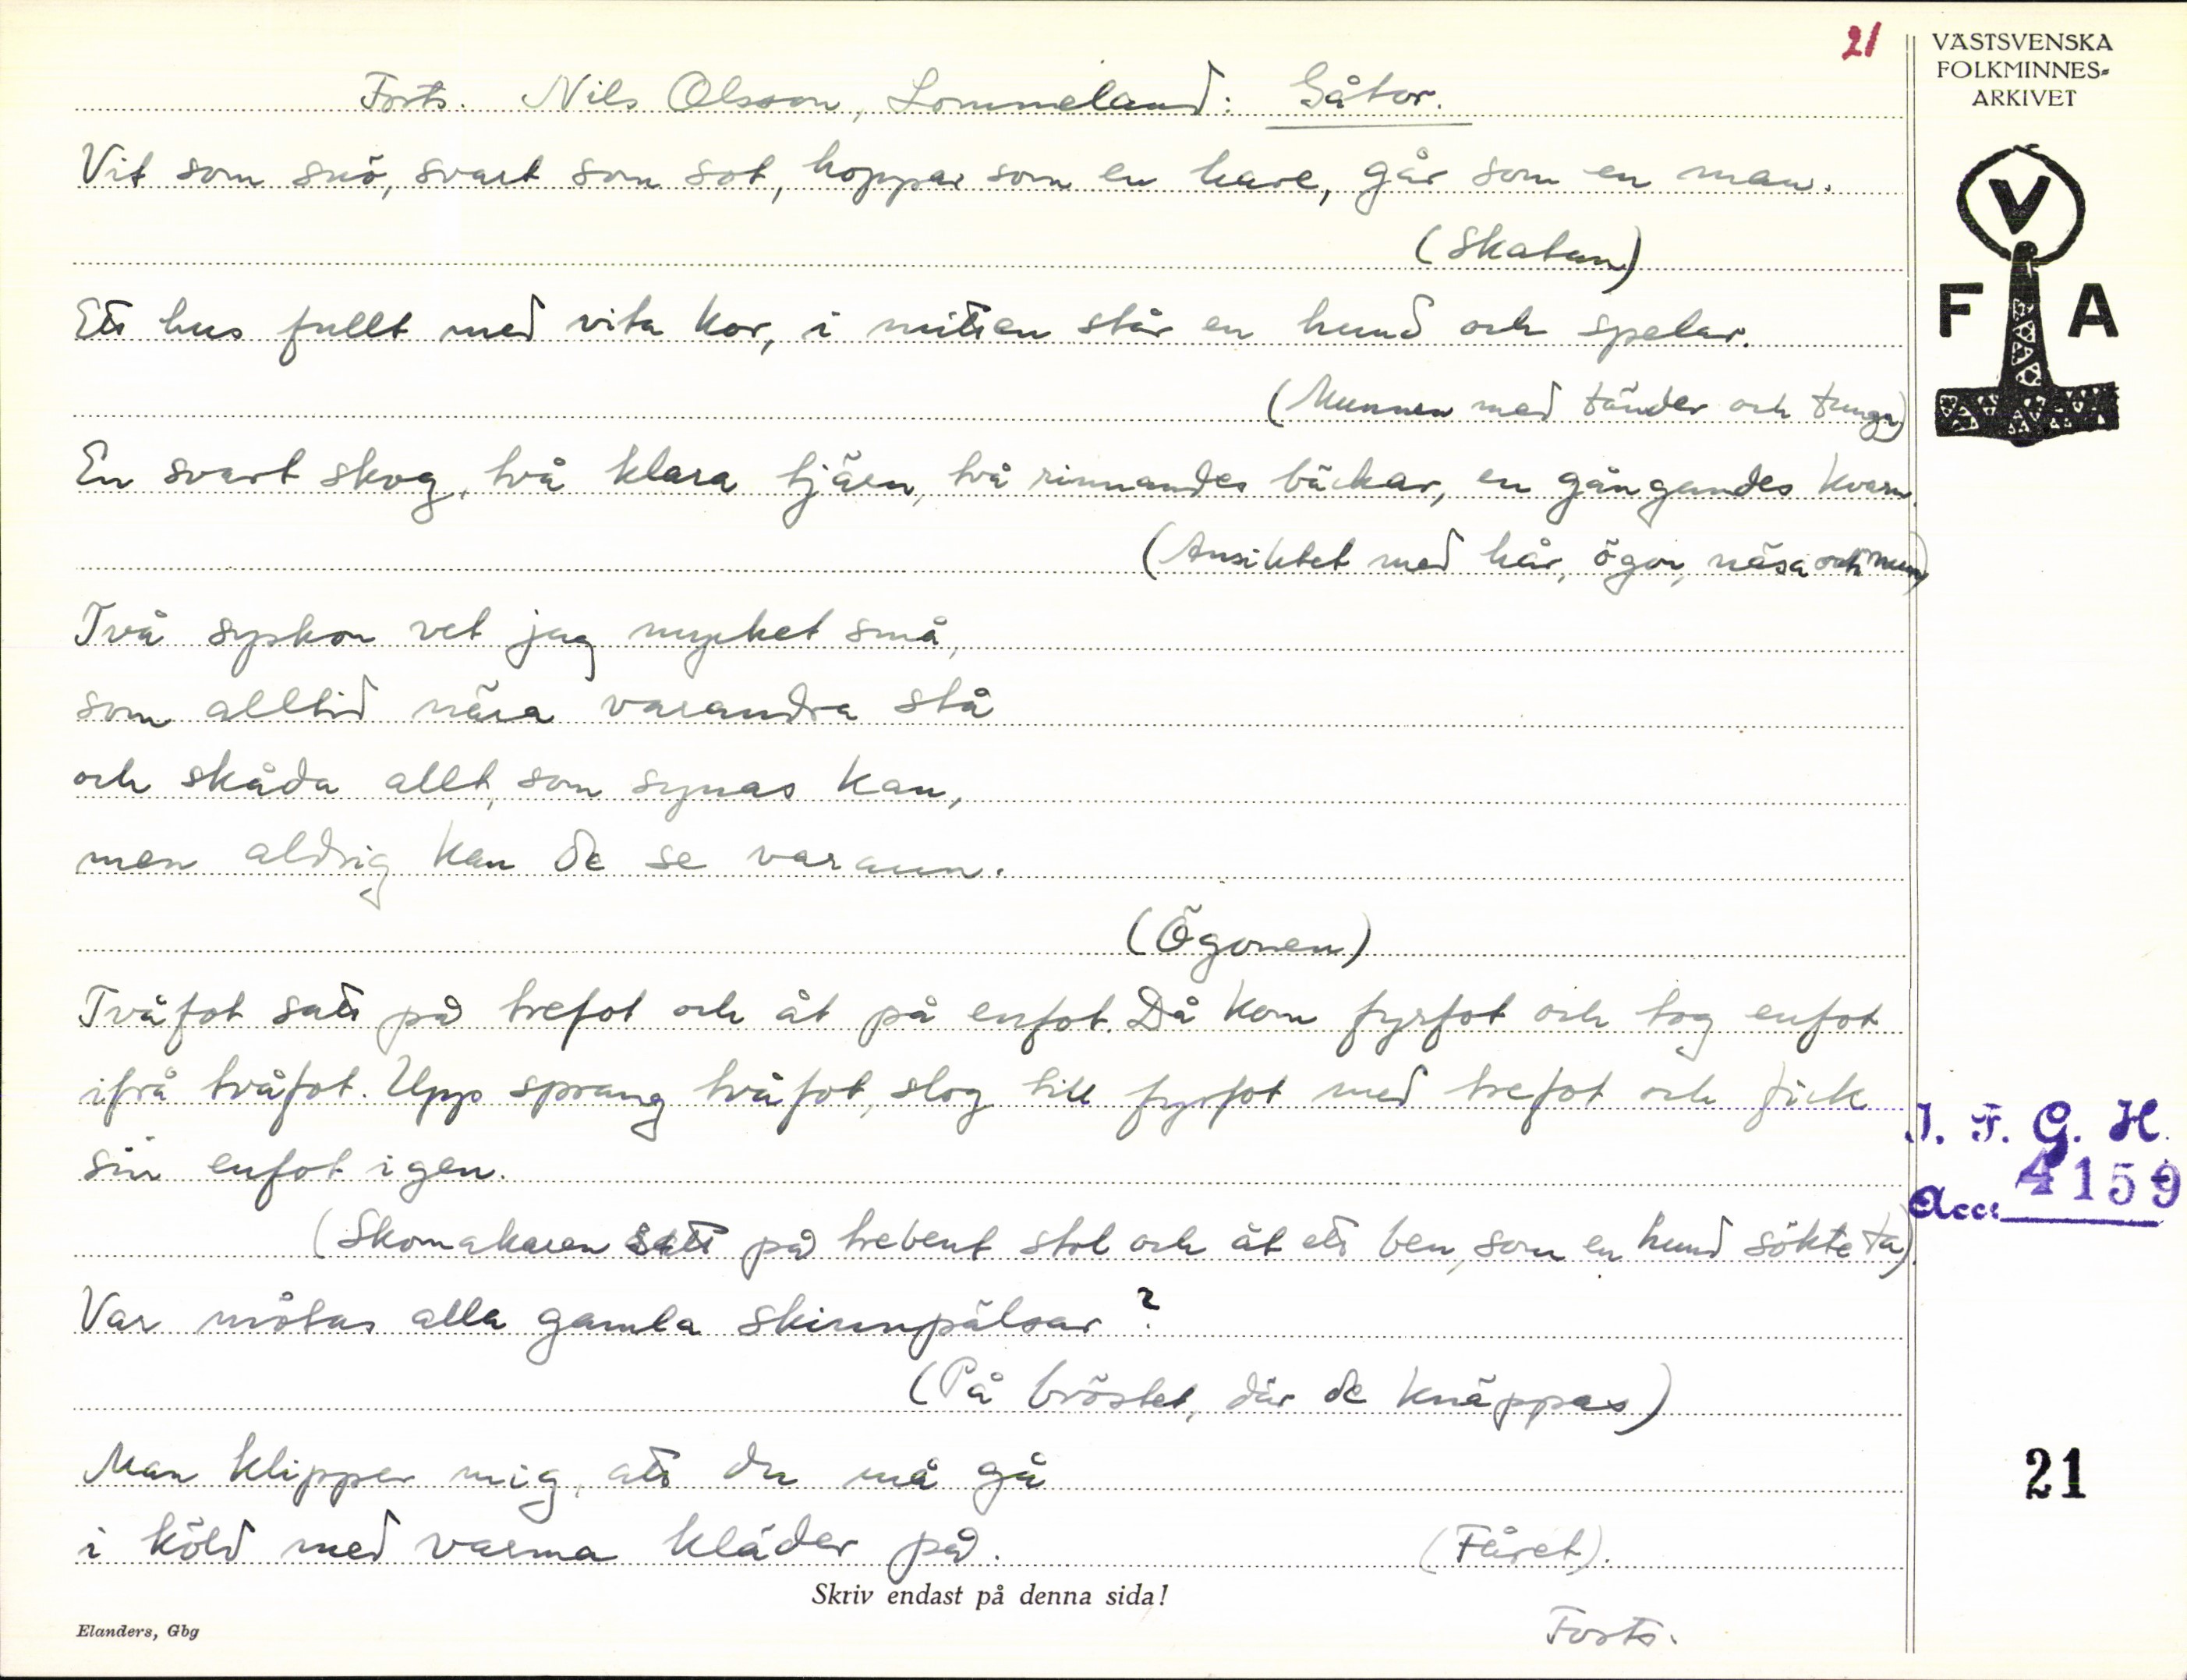 21
VÄSTSVENSKA
FOLKMINNES-
ARKIVET
Forts. Nils Olsson, Lommeland: Gåtor.
Vit som snö, svart som sot, hoppar som en hare, går som en man.
(Skatan)
V
F A
Ett hus fullt med vita kor, i mitten står en hund och spelar.
(Munnen med tänder och tunga)
En svart skog, två klara tjärn, två rinnandes bäckar, en gångandes kvarn.
(Ansiktet med hår, ögon, näsa och mun)
Två syskon vet jag mycket små,
som alltid nära varandra stå
och skåda allt, som synas kan,
men aldrig kan de se varann.
(Ögonen)
Tvåfot satt på trefot och åt på enfot. Då kom fyrfot och tog enfot
ifrå tvåfot. Upp sprang tvåfot, slog till fyrfot med trefot och fick
sin enfot igen.
I. F. G. H.
Acc: 4159
(Skomakaren satt på trebent stol och åt ett ben, som en hund sökte ta)
Var mötas alla gamla skinnpälsar?
(På bröstet, där de knäppas)
Man klipper mig, att du må gå
21
i köld med varma kläder på. (Fåret).
Skriv endast på denna sida!
Elanders, Gbg
Forts.